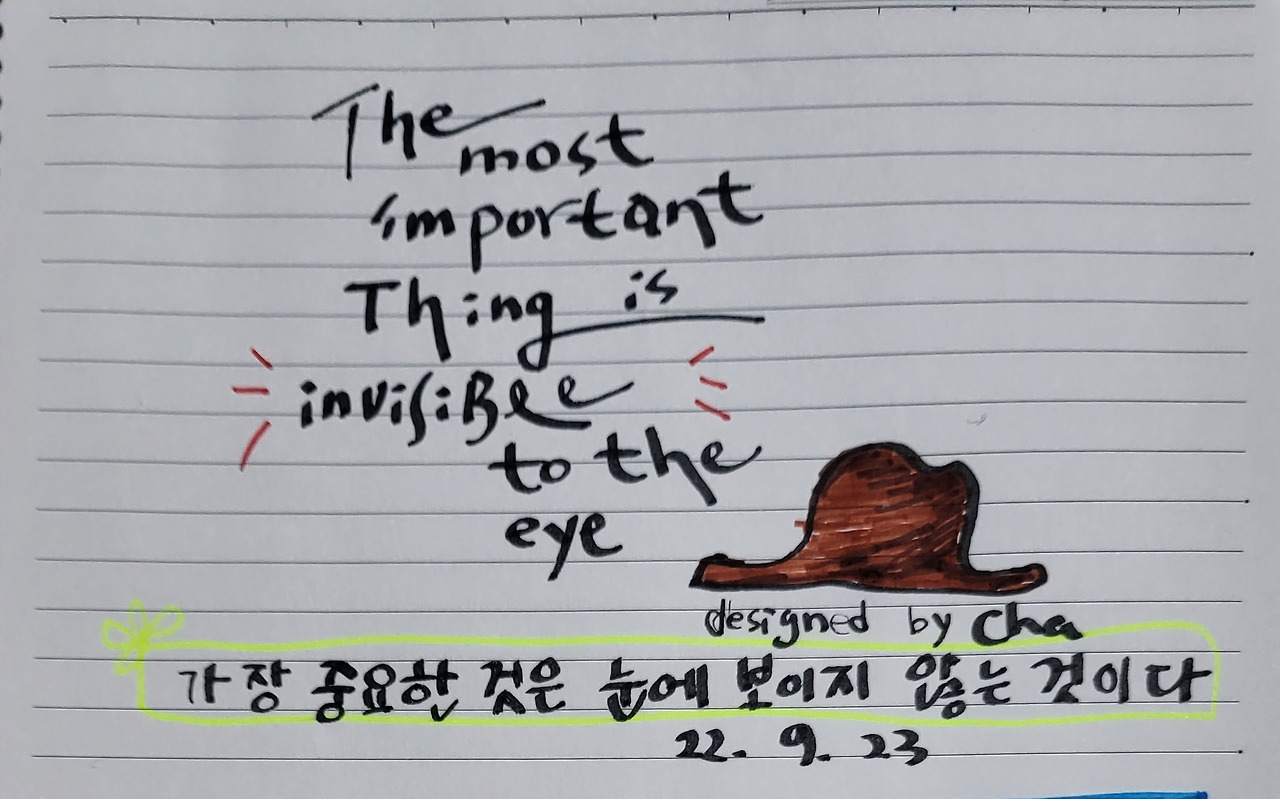 The
most
important
Thing is
invisiBle
to the
eye
designed by Cha
가장 중요한 것은 눈에 보이지 않는 것이다
22. 9. 23